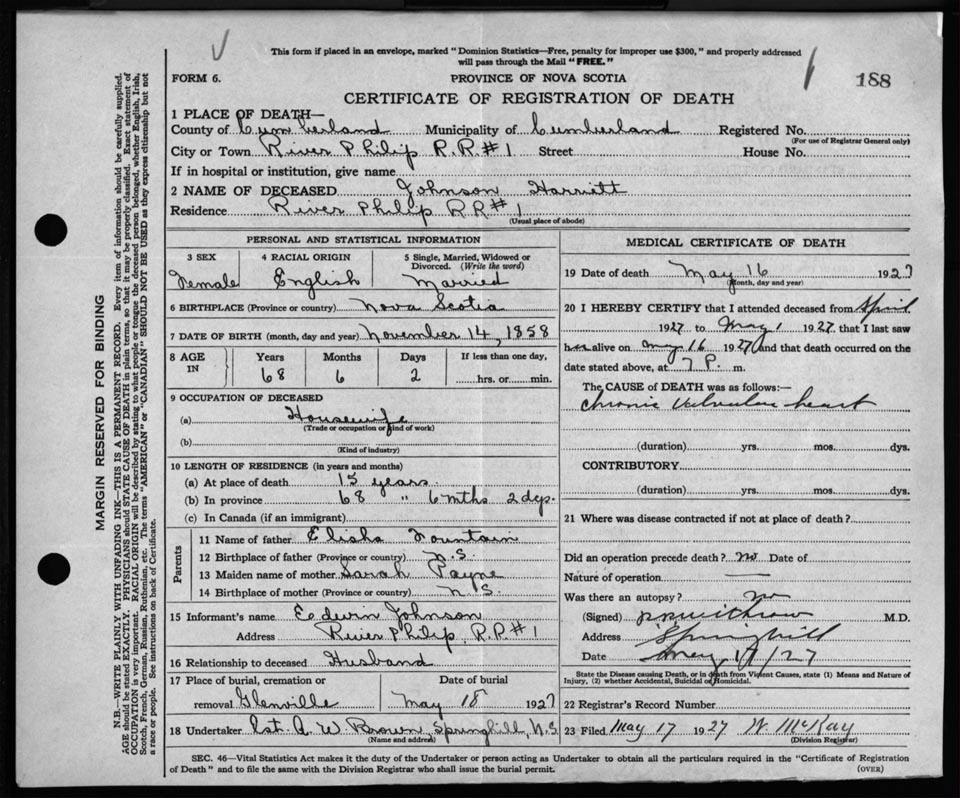 This form if placed in an envelope, marked "Dominion Statistics—Free, penalty for improper use $300," and properly addressed
will pass through the Mail "FREE."
FORM 6.
PROVINCE OF NOVA SCOTIA
188
CERTIFICATE OF REGISTRATION OF DEATH
1 PLACE OF DEATH—
County of Cumberland Municipality of Cumberland Registered No.
(For use of Registrar General only)
City or Town River Philip R.R#1 Street House No.
If in hospital or institution, give name
2 NAME OF DECEASED Johnson Harriett
Residence River Philip R.R#1
(Usual place of abode)
PERSONAL AND STATISTICAL INFORMATION
3 SEX 4 RACIAL ORIGIN 5 Single, Married, Widowed or Divorced. (Write the word)
Female English Married
6 BIRTHPLACE (Province or country) Nova Scotia
7 DATE OF BIRTH (month, day and year) November 14, 1858
8 AGE IN Years Months Days If less than one day,
68 6 2 hrs. or min.
9 OCCUPATION OF DECEASED
(a) Housewife
(Trade or occupation or kind of work)
(b)
(Kind of industry)
10 LENGTH OF RESIDENCE (in years and months)
(a) At place of death 15 years
(b) In province 68 " 6 mths 2 dys.
(c) In Canada (if an immigrant)
Parents
11 Name of father Elisha Fountain
12 Birthplace of father (Province or country) N.S.
13 Maiden name of mother Sarah Payne
14 Birthplace of mother (Province or country) N.S.
15 Informant's name Edwin Johnson
Address River Philip, R.R#1
16 Relationship to deceased Husband
17 Place of burial, cremation or Date of burial
removal Glenville May 18 1927
18 Undertaker A. W. Brown, Springhill, N.S.
(Name and address)
MEDICAL CERTIFICATE OF DEATH
19 Date of death May 16 1927
(Month, day and year)
20 I HEREBY CERTIFY that I attended deceased from April
1927 to May 1 1927 that I last saw
her alive on May 16 1927 and that death occurred on the
date stated above, at 7 P. m.
The CAUSE of DEATH was as follows:—
Chronic Valvular heart
(duration) yrs. mos. dys.
CONTRIBUTORY
(duration) yrs. mos. dys.
21 Where was disease contracted if not at place of death?
Did an operation precede death? no Date of
Nature of operation —
Was there an autopsy? no
(Signed) Withrow M.D.
Address Springhill
Date May 17/27
State the Disease causing Death, or in death from Violent Causes, state (1) Means and Nature of
Injury, (2) whether Accidental, Suicidal or Homicidal.
22 Registrar's Record Number
23 Filed May 17 1927 W McKay
(Division Registrar)
SEC. 46—Vital Statistics Act makes it the duty of the Undertaker or person acting as Undertaker to obtain all the particulars required in the "Certificate of Registration
of Death" and to file the same with the Division Registrar who shall issue the burial permit.
(OVER)
MARGIN RESERVED FOR BINDING
N.B.—WRITE PLAINLY WITH UNFADING INK—THIS IS A PERMANENT RECORD. Every item of information should be carefully supplied.
AGE should be stated EXACTLY. PHYSICIANS should STATE CAUSE OF DEATH in plain terms, so that it may be properly classified. Exact statement of
OCCUPATION is very important. RACIAL ORIGIN will be described by stating to what people or tongue the deceased person belonged, whether English, Irish,
Scotch, French, German, Russian, Ruthenian, etc. The terms "AMERICAN" or "CANADIAN" SHOULD NOT BE USED as they express citizenship but not
a race or people. See instructions on back of Certificate.